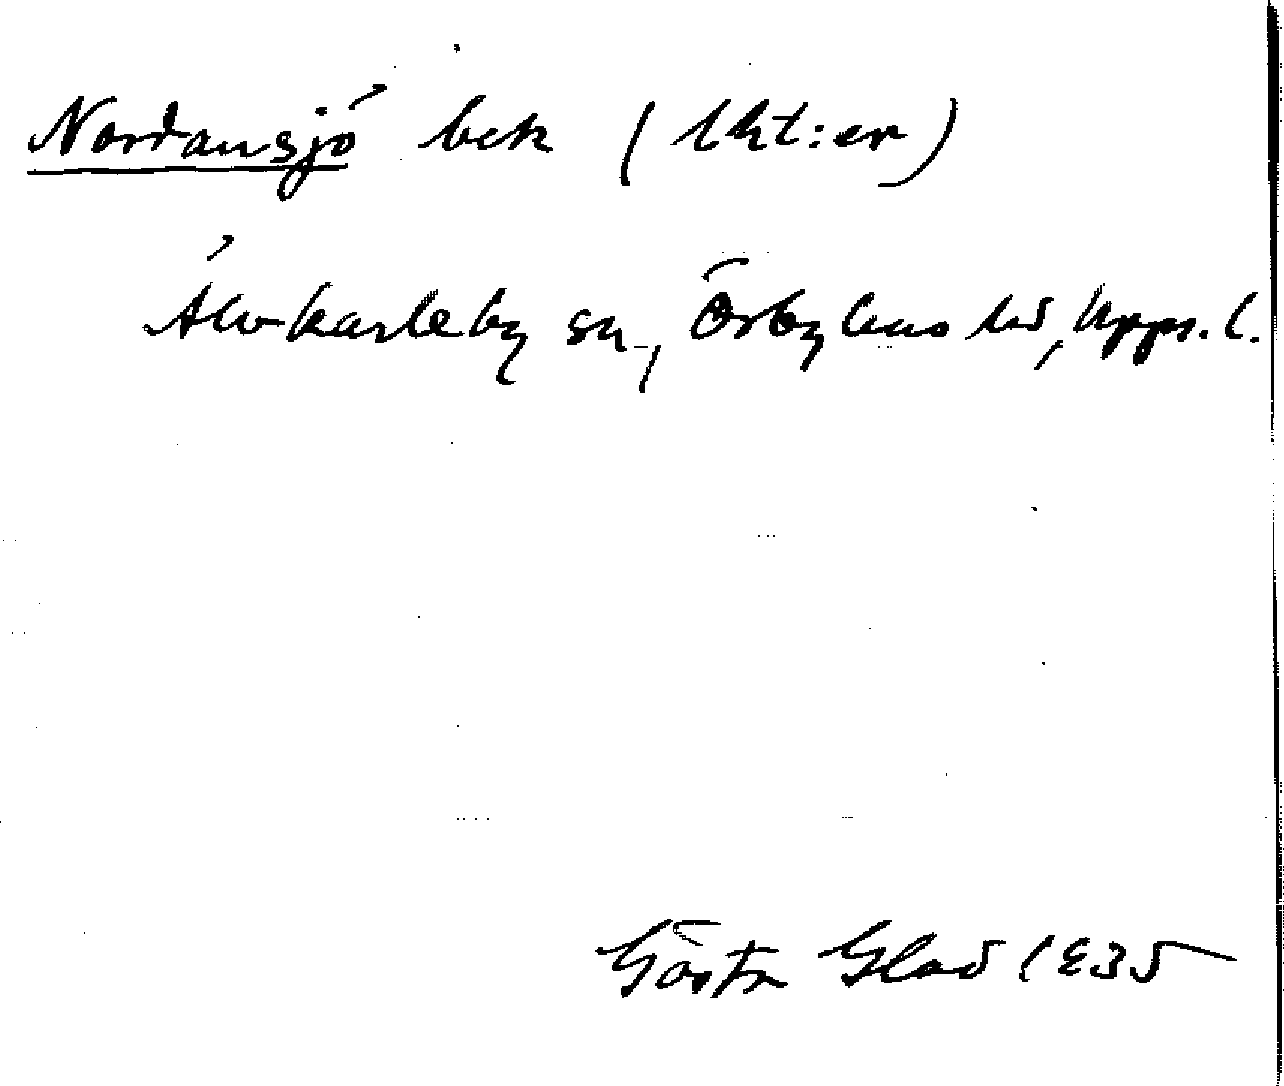 Nordansjö bek (lht:er)
Älvkarleby sn, Örbyhus hd, Upps. l.
Gösta Glad 1935